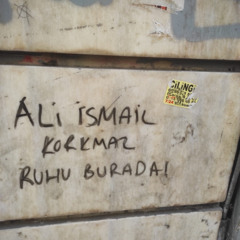 ALİ İSMAİL
KORKMAZ
RUHU BURADA!